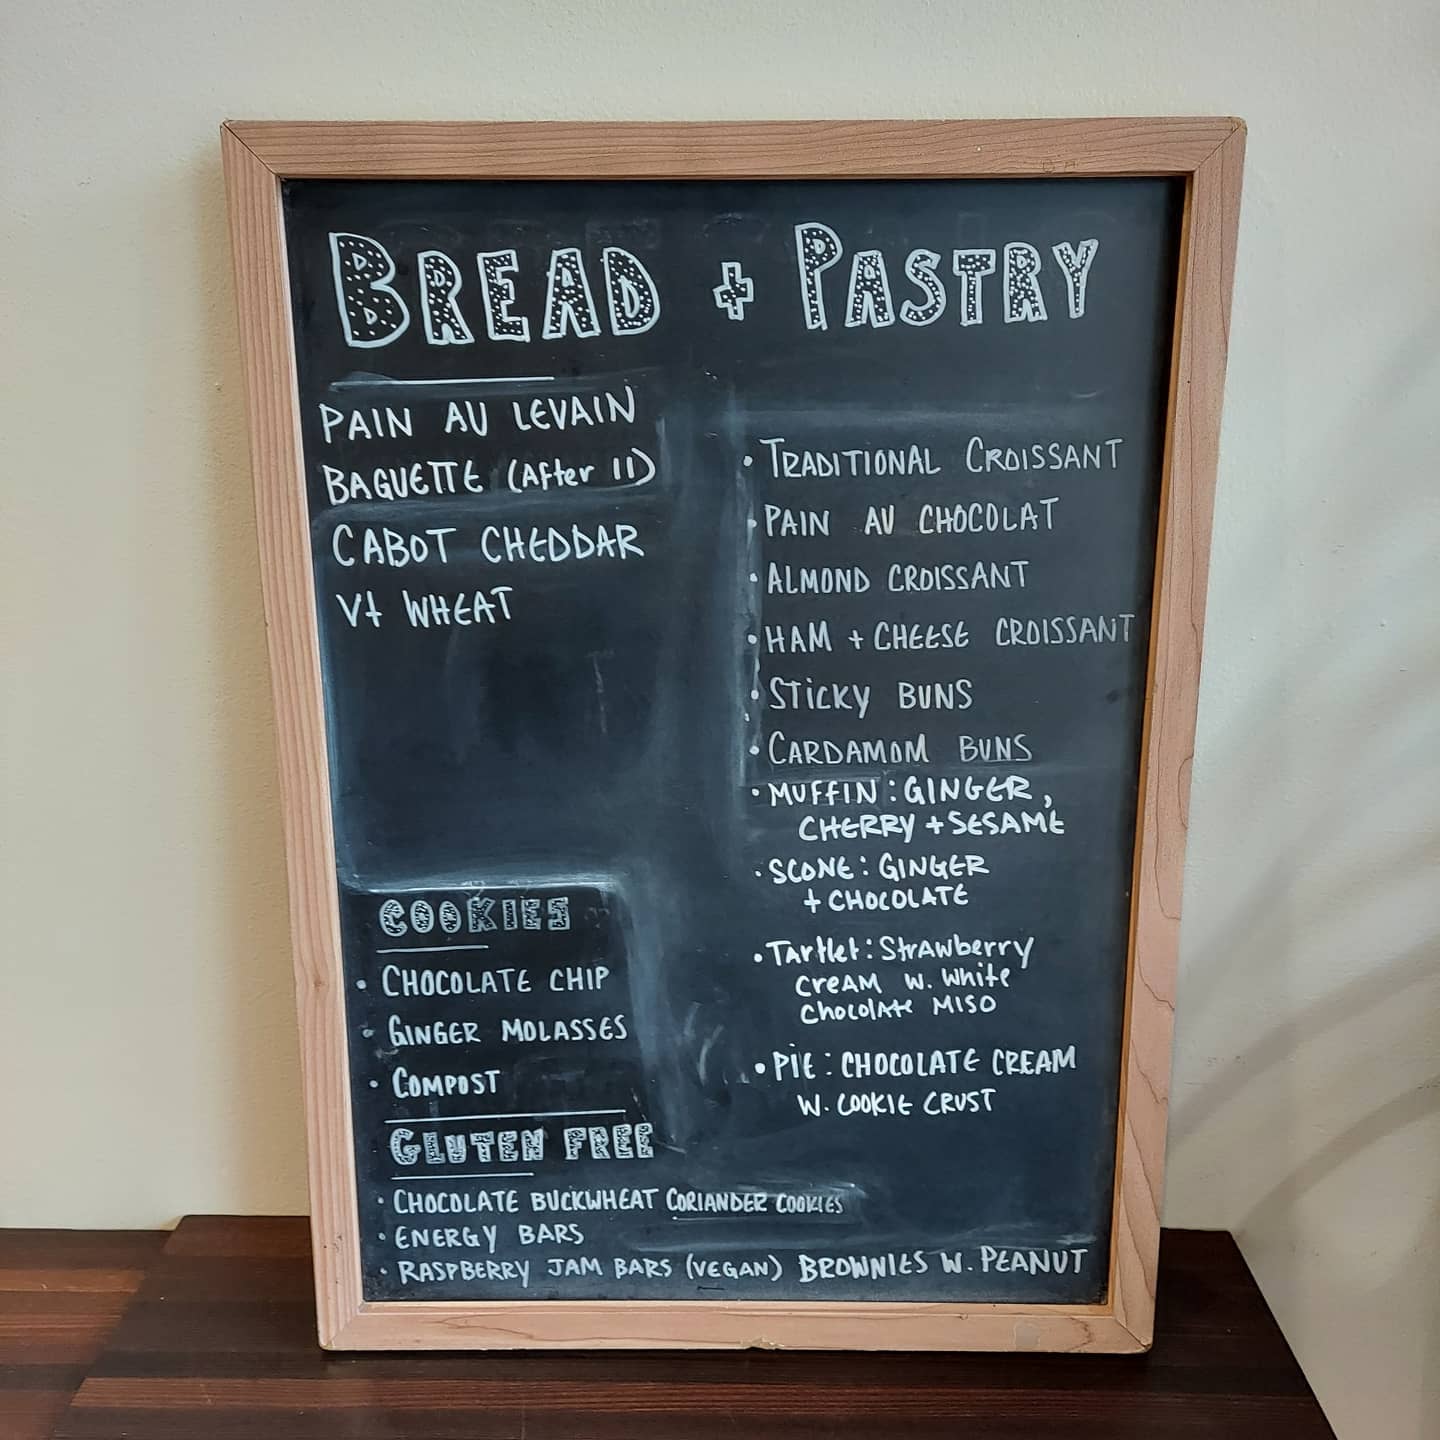 BREAD + PASTRY
PAIN AU LEVAIN
BAGUETTE (After 11)
CABOT CHEDDAR
Vt WHEAT
COOKIES
• CHOCOLATE CHIP
• GINGER MOLASSES
• COMPOST
GLUTEN FREE
• CHOCOLATE BUCKWHEAT CORIANDER COOKIES
• ENERGY BARS
• RASPBERRY JAM BARS (VEGAN) BROWNIES W. PEANUT
• TRADITIONAL CROISSANT
• PAIN AU CHOCOLAT
• ALMOND CROISSANT
• HAM + CHEESE CROISSANT
• STICKY BUNS
• CARDAMOM BUNS
• MUFFIN: GINGER,
CHERRY + SESAME
• SCONE: GINGER
+ CHOCOLATE
• Tartlet: Strawberry
Cream W. White
Chocolate MISO
• PIE: CHOCOLATE CREAM
W. COOKIE CRUST